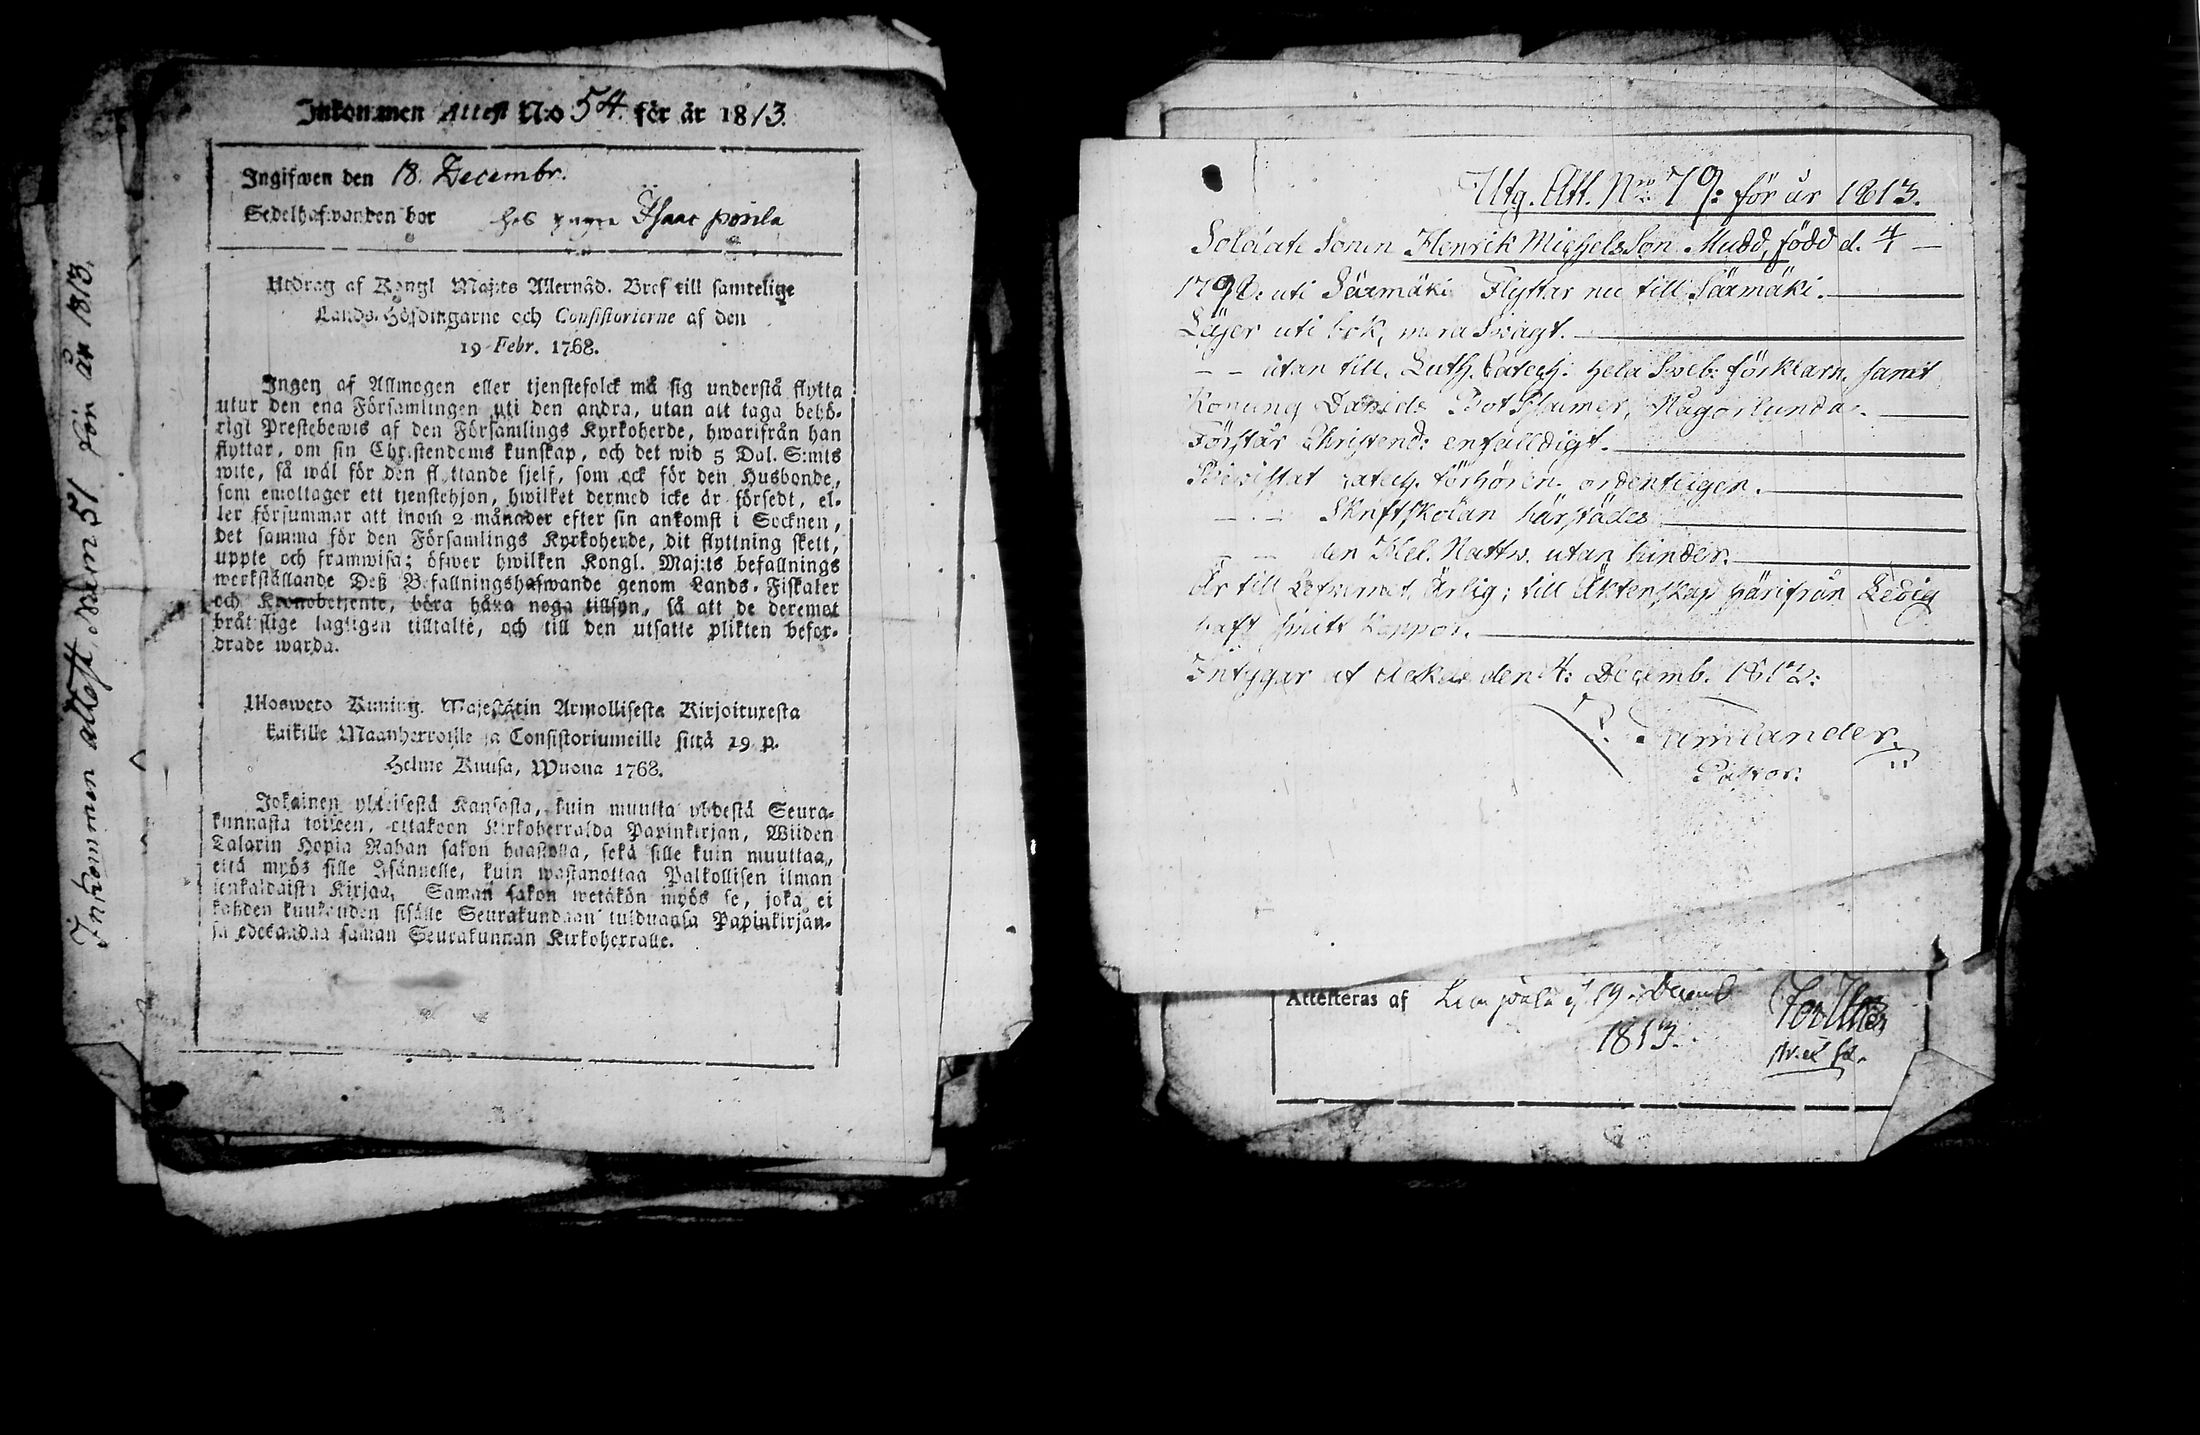 Inkommen Attest N:o 54. för år 1813.
Ingifwen den 18. Decembr.
Sedelhafwanden bor hos Isaac
Utdrag af Kongl Maj:ts Allernåd. Bref till samtelige
Lands-Höfdingarne och Consistorierne af den
19 Febr. 1768.
Ingen af Allmogen eller tjenstefolck må sig understå flytta
utur den ena Församlingen uti den andra, utan att taga behö-
rigt Prestebewis af den Församlings Kyrkoherde, hwarifrån han
flyttar, om sin Christendoms kunskap, och det wid 5 Dal. S:mts
wite, så wäl för den flyttande sjelf, som ock för den Husbonde,
som emottager ett tjenstehjon, hwilket dermed icke är försedt, el-
ler försummar att inom 2 månader efter sin ankomst i Socknen,
det samma för den Församlings Kyrkoherde, dit flyttning skett,
uppte och framwisa; öfwer hwilken Kongl. Maj:ts befallnings
werkställande Deß Befallningshafwande genom Lands-Fiskaler
och Kronobetjente, böra håra noga tillsyn, så att de deremot
bråtslige lagligen tilltalte, och till den utsatte plikten befor-
drade warda.
Ulosweto Kuning. Majestätin Armollisesta Kirjoituxesta
kaikille Maanherroille ja Consistoriumeille siitä 19 p.
Helme Kuusa, Wuona 1768.
Jokainen yhteisestä Kansasta, kuin muutta yhdestä Seura-
kunnasta toiseen, ottakoon Kirkoherralda Papinkirjan, Wiiden
Talarin Hopia Rahan sakon haastolla, sekä sille kuin muuttaa,
että myös sille Isännelle, kuin wastanottaa Palkollisen ilman
senkaldaista Kirjaa. Saman sakon wetäkön myös se, joka ei
kahden kuukauden sisälle Seurakundaan tulduansa Papinkirjan-
sa edesandaa saman Seurakunnan Kirkoherralle.
Inkommen attest Num 51 för år 1813.
Utg. Att. No 79: för år 1813.
Soldate Sonen Henrik Michelsson Mudd, född d. 4 —
179 uti Säxmäki Flyttar nu till Säxmäki.
Läser uti bok, mera Swagt.
– – utan till, Luth. Catech: hela Sweb: förklarn, samt
Konung Davids Bot Psalmer, Någorlunda.
Förstår Christend: enfalldigt.
Bewistat Catech. förhören ordenteligen.
– – Skriftskolan härstädes
– – den Hel. Nattv. utan hinder.
Är till Lefwernet Ärlig; till Äktenskap härifrån Ledig
haft Koppor.
Intygar at den 4: Decemb. 1813:
Pastor:
Attesteras af d. 19 Decemb
1813.